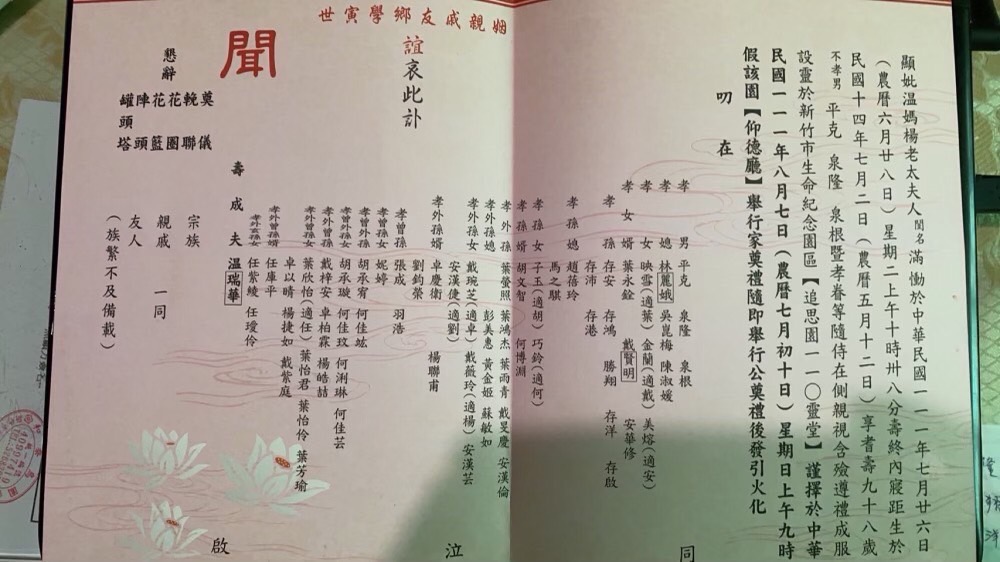 顯妣溫媽楊老太夫人閨名滿慟於中華民國一一一年七月廿六日
（農曆六月廿八日）星期二上午十時卅八分壽終內寢距生於
民國十四年七月二日（農曆五月十二日）享耆壽九十八歲
不孝男 平克 泉隆 泉根暨孝眷等隨侍在側親視含殮遵禮成服
設靈於新竹市生命紀念園區【追思園一一〇靈堂】謹擇於中華
民國一一一年八月七日（農曆七月初十日）星期日上午九時
假該園【仰德廳】舉行家奠禮隨即舉行公奠禮後發引火化
叨在
姻親戚友鄉學寅世
誼哀此訃
聞
懇辭
奠儀 輓聯 花圈 花籃 陣頭 罐頭塔
孝男 平克 泉隆 泉根
孝媳 林麗娥 吳崑梅 陳淑媛
孝女 映雪（適葉） 金蘭（適戴） 美熔（適安）
孝女婿 葉永銓 戴賢明 安華修
孝孫 存安 存鴻 勝翔 存洋 存啟
存沛 存港
孝孫媳 趙蓓玲
馬之騏
孝孫女 子玉（適胡） 巧鈴（適何）
孝孫婿 胡文智 何博淵
孝外孫 葉螢照 葉鴻杰 葉雨青 戴旻慶 安漢倫
孝外孫媳 彭美惠 黃金姬 蘇敏如
孝外孫女 戴琬芝（適卓） 戴薇玲（適楊） 安漢芸
安漢倢（適劉）
孝外孫婿 卓慶衛 楊聯甫
劉鈞榮
孝曾孫 張成 羽浩
孝曾孫女 妮婷
孝曾外孫 胡承宥 何佳竑
孝曾外孫女 胡承璇 何佳玟 何浰琳 何佳芸
孝外曾孫 戴梓安 卓柏霖 楊皓喆
孝外曾孫女 葉欣怡（適任） 葉怡君 葉怡伶 葉芳瑜
卓以晴 楊捷如 戴紫庭
孝外曾孫婿 任庫平
孝外玄孫女 任紫綾 任瑷伶
壽成夫 溫瑞華
宗族
親戚 一同
友人
（族繁不及備載）
同
泣
啟